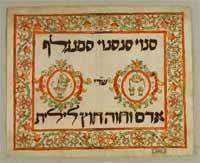 סנוי סנסנוי סמנגלף
שדי
אדם וחוה חוץ לילית